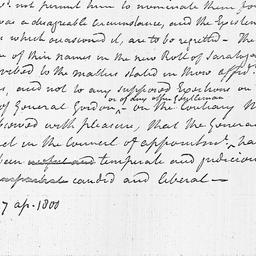 not permit him to nominate them for
was a disagreable circumstance, and the
which occasioned it, are to be regretted - The
of their names in the new Roll of Saratoga
to the matters stated in those affid.ts
and not to any supposed Exertions on
or of any other Gentleman
of General Gordon ^ - on the contrary
with pleasure, that the General
in the Council of appointmt. ha
been temperate and judicious
candid and liberal -
7 ap. 1800